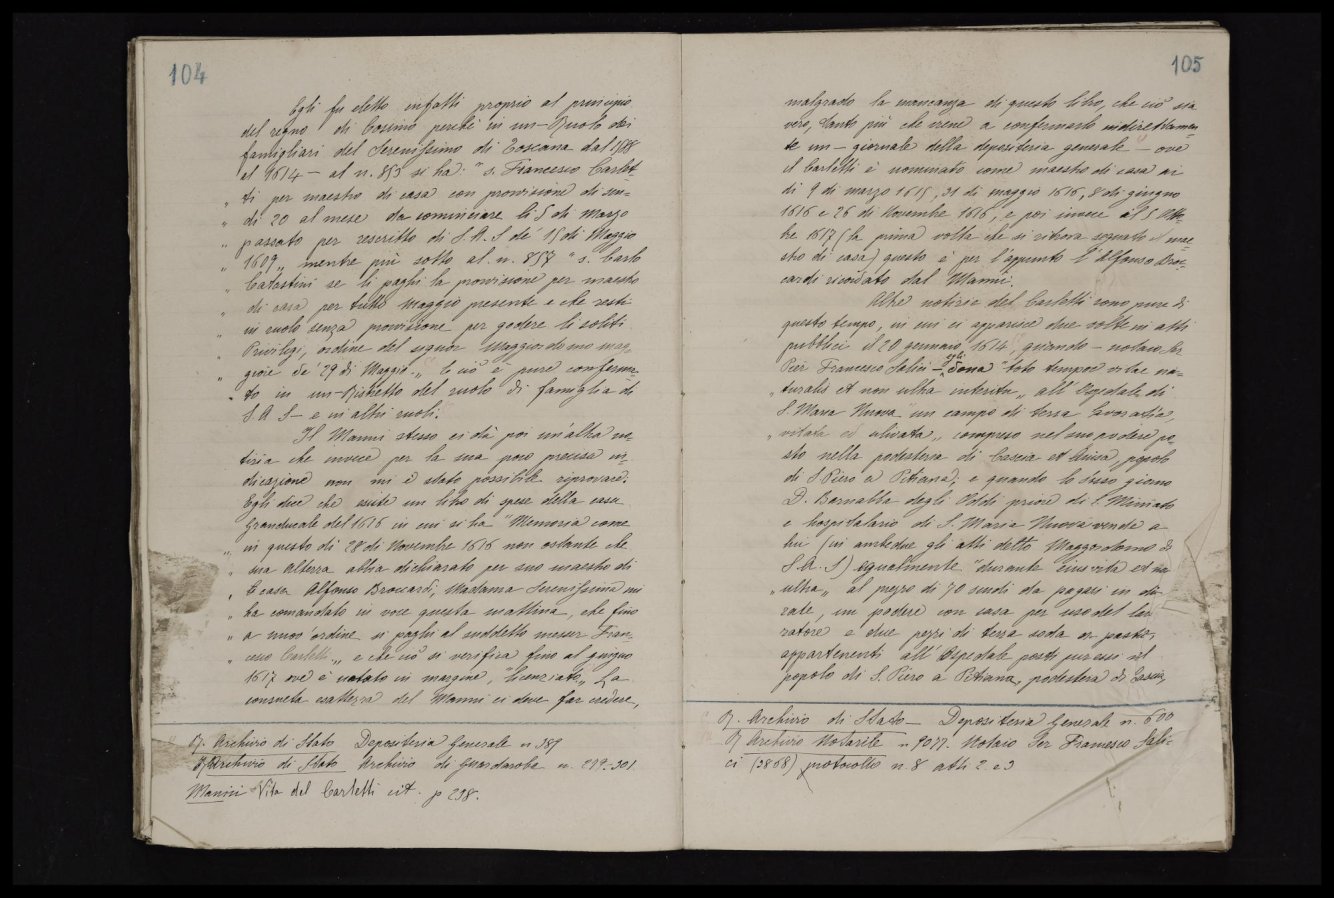 104
Egli fu eletto infatti proprio al principio
del regno di Cosimo perchè in un - Ruolo dei
famigliari del Serenissimo di Toscana dal 1588
al 1614 - al n. 853 si ha: " s. Francesco Carlet-
" ti per maestro di casa con provvisione di scu-
" di 20 al mese da cominciare li 5 di Marzo
" passato per rescritto di S. A. S. de' 15 di Maggio
" 1609 " mentre più sotto al n. 857 " s. Carlo
" Catastini se li paghi la provvisione per maestro
" di casa per tutto Maggio presente e che resti
" in ruolo senza provvisione per godere li soliti
" Privilegi, ordine del signor Maggiordomo mag-
" giore de' 29 di Maggio " E ciò è pure conferma-
to in un - Ristretto del ruolo di famiglia di
S. A. S - e in altri ruoli.
Il Manni stesso ci dà poi un'altra no-
tizia che invece per la sua poco precisa in-
dicazione non mi è stato possibile riprovare.
Egli dice che esiste un libro di spese della casa
Granducale del 1616 in cui si ha " Memoria come
" in questo dì 28 di Novembre 1616 non ostante che
" sua Altezza abbia dichiarato per suo maestro di
" casa Alfonso Broccardi, Madama Serenissima mi
" ha comandato in voce questa mattina, che fino
" a nuov'ordine si paghi al suddetto messer Fran-
" cesco Carletti " e che ciò si verifica fino al giugno
1617 ove è notato in margine, " licenziato " La
consueta esattezza del Manni ci deve far credere,
Archivio di Stato Depositeria Generale n. 389
Archivio di Stato Archivio di Guardaroba n. 279-301
Manni Vita del Carletti cit. p 298.
105
malgrado la mancanza di questo libro, che ciò sia
vero, tanto più che viene a confermarlo indirettamen-
te un - giornale della depositeria generale - ove
il Carletti è nominato come maestro di casa ai
di 9 di marzo 1615, 31 di maggio 1616, 8 di giugno
1616 e 26 di Novembre 1616, e poi invece al 5 Otto-
bre 1617 (la prima volta che si ritrova segnato il mae-
stro di casa) questo è per l'appunto l'Alfonso Broc-
cardi ricordato dal Manni.
Altre notizie del Carletti sono pure di
questo tempo, in cui ci apparisce due volte in atti
pubblici il 20 gennaio 1614, quando - notaio Ser
Pier Francesco Salici - egli dona " toto tempore vitae na-
" turalis et non ultra interitu " all'Ospedale di
S. Maria Nuova " un campo di terra lavoratia,
" vitata ed ulivata " compreso nel suo podere po-
sto nella podesteria di Cascia et Incisa, popolo
di S. Piero a Pitiana, e quando lo stesso giorno
D. Barnabba degli Oddi priore di S. Miniato
e hospitalario di S. Maria Nuova vende a
lui (in ambedue gli atti detto Maggiordomo di
S. A. S) egualmente " durante eius vita et no
" ultra " al prezzo di 70 scudi da pagarsi in du-
rate, un podere con casa per uso del lavo
ratore e due pezzi di terra soda or pastura,
appartenenti all'Ospedale posti puressi nel
popolo di S. Piero a Pitiana, podesteria di Cascia
Archivio di Stato - Depositeria Generale n. 600
Archivio Notarile - n 9077. Notaio Ser Francesco Sali-
ci (3868) protocollo n. 8 atti 2 e 3